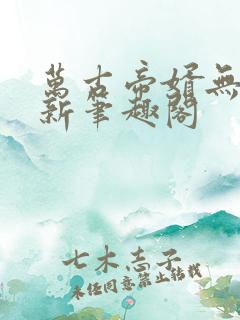 萬古帝婿無
新筆趣閣
七木志子
未經同意禁止轉載